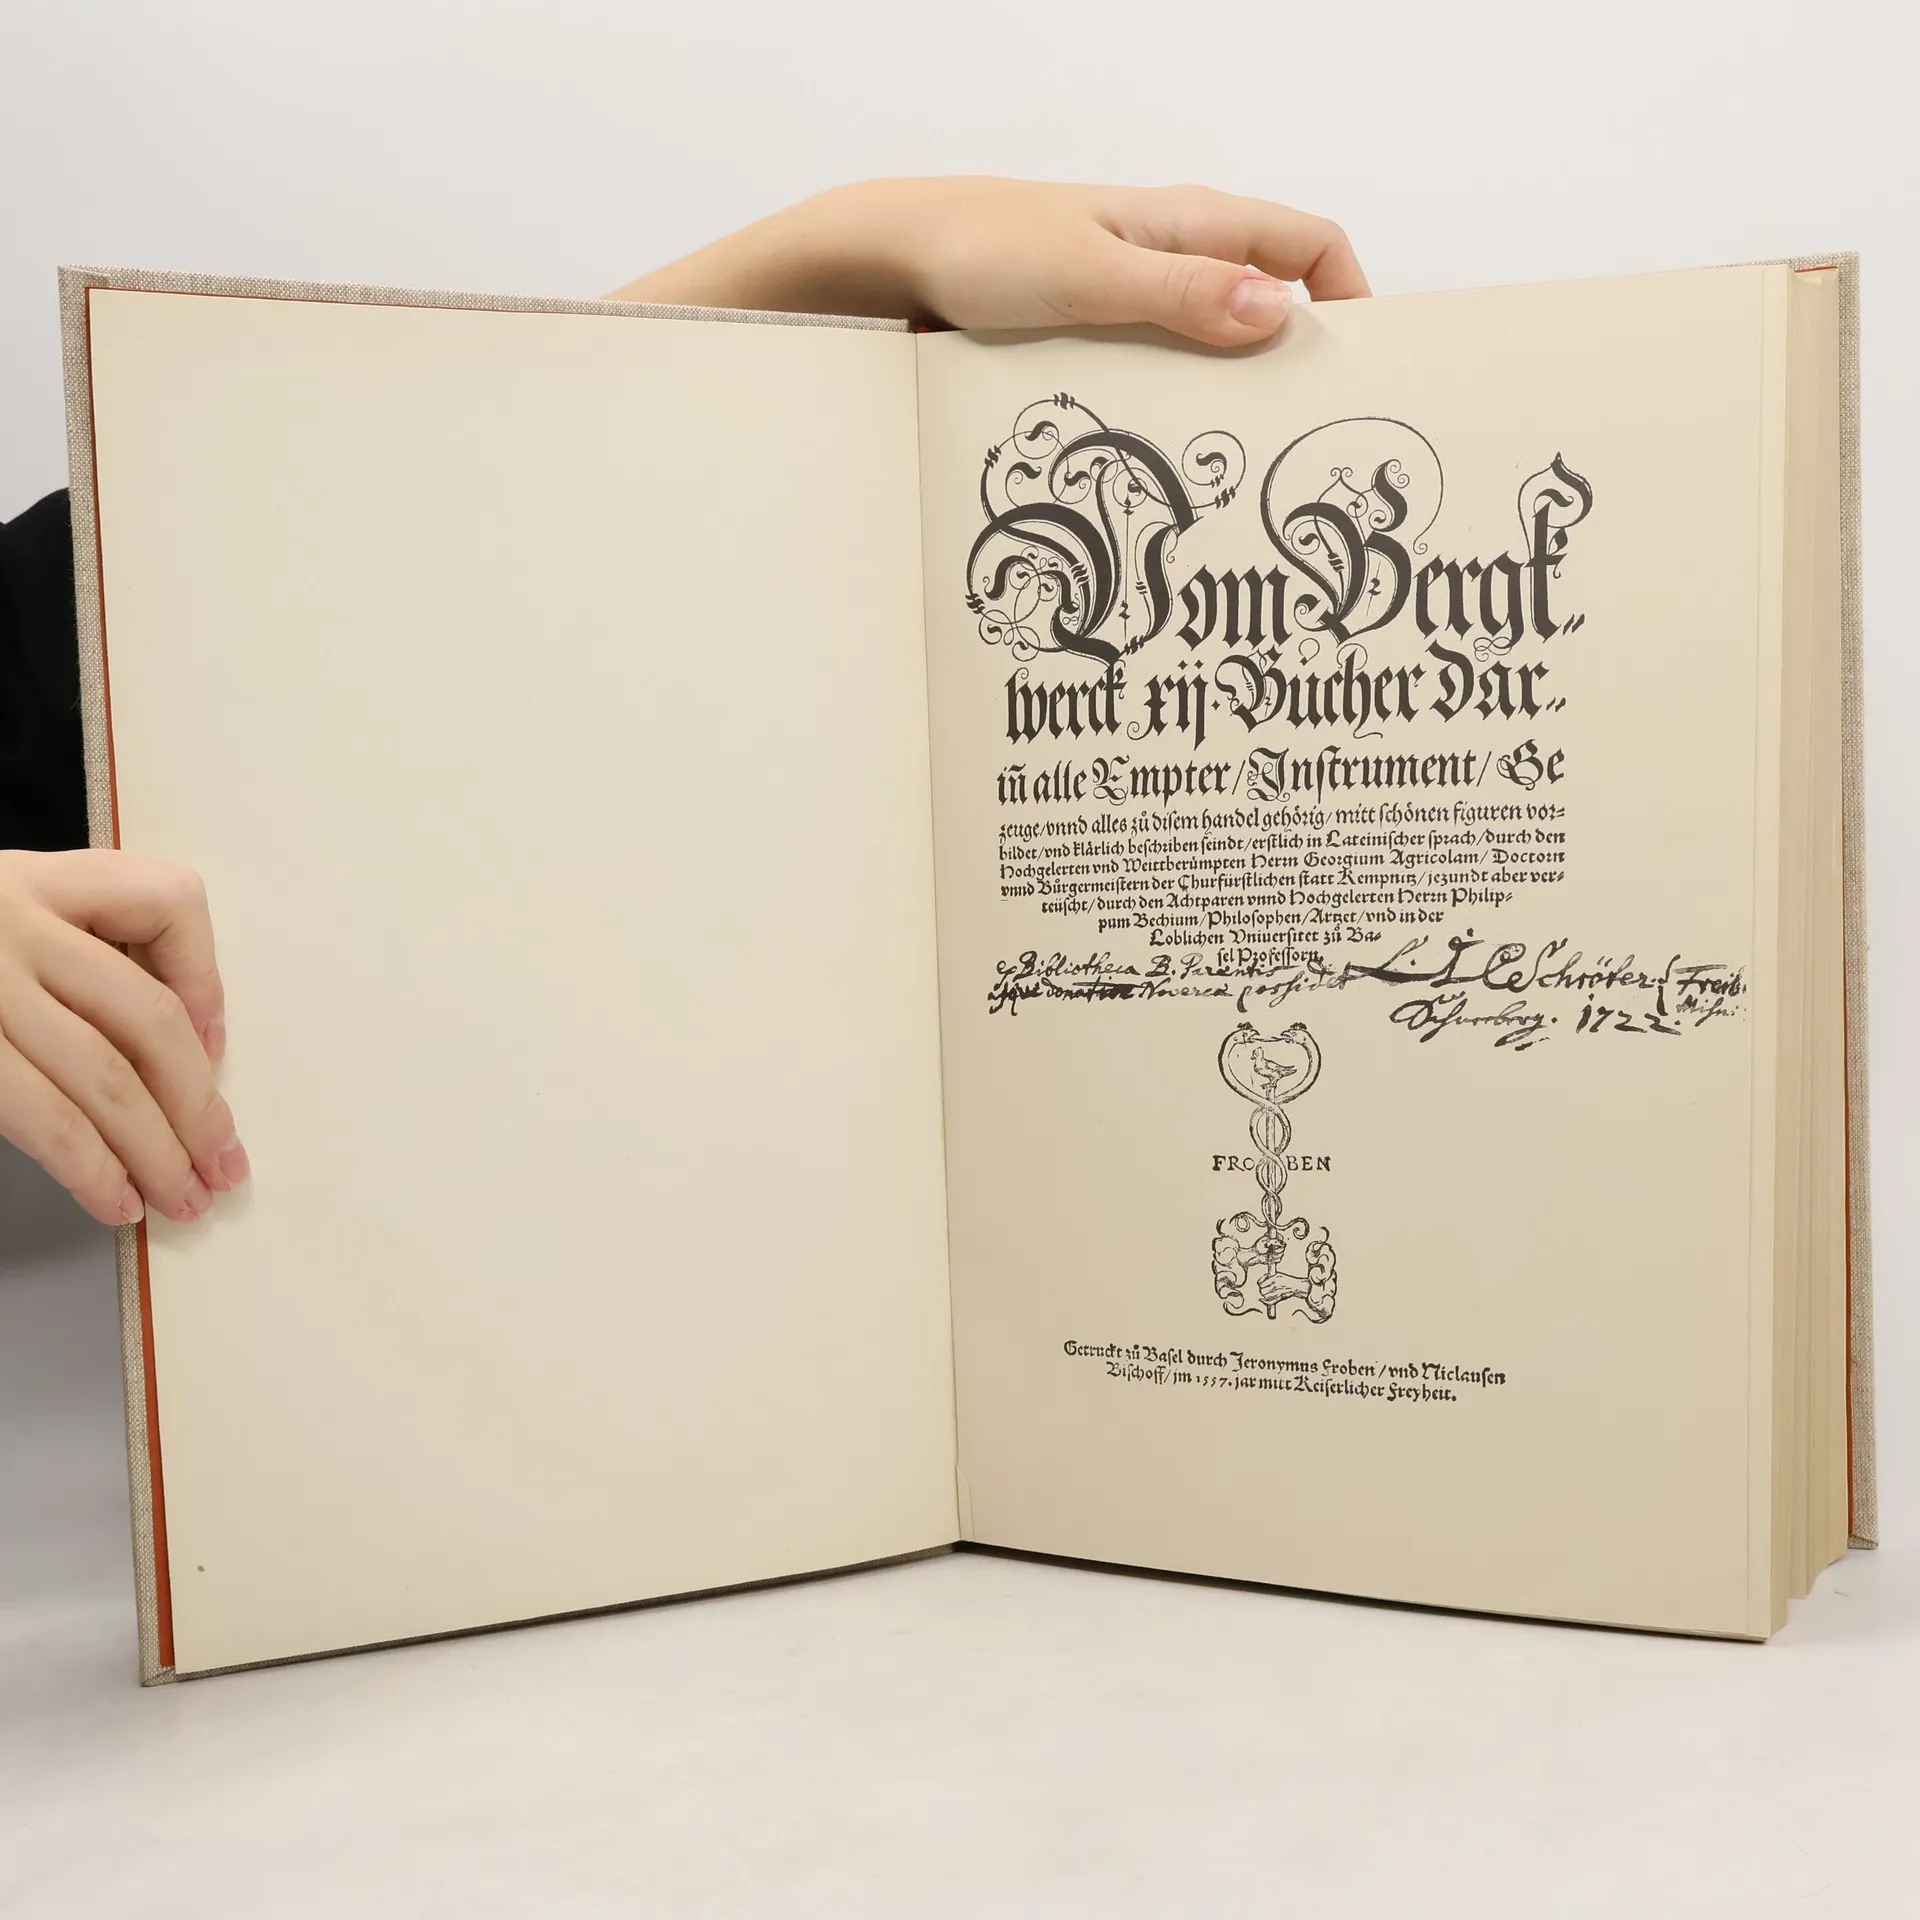 Vom Bergk⸗
werck xij. Bücher Dar⸗
iñ alle Empter/Instrument/Ge
zeuge/vnnd alles zů disem handel gehörig/mitt schönen figuren vor⸗
bildet/vnd klärlich beschriben seindt/erstlich in Lateinischer sprach/durch den
Hochgelerten vnd Weittberümpten Herrn Georgium Agricolam/Doctorn
vnnd Bürgermeistern der Churfürstlichen statt Kempnitz/jezundt aber ver⸗
teüscht/durch den Achtparen vnnd Hochgelerten Herrn Philip⸗
pum Bechium/Philosophen/Artzet/vnd in der
Loblichen Vniuersitet zů Ba⸗
sel Professorn.
ex Bibliotheca B. Parentis
Noverca possidet
Schröter. Freib.
Schneeberg. 1722.
FRO BEN
Getruckt zů Basel durch Jeronymus Froben/vnd Niclausen
Bischoff/im 1557. jar mitt Keiserlicher Freyheit.